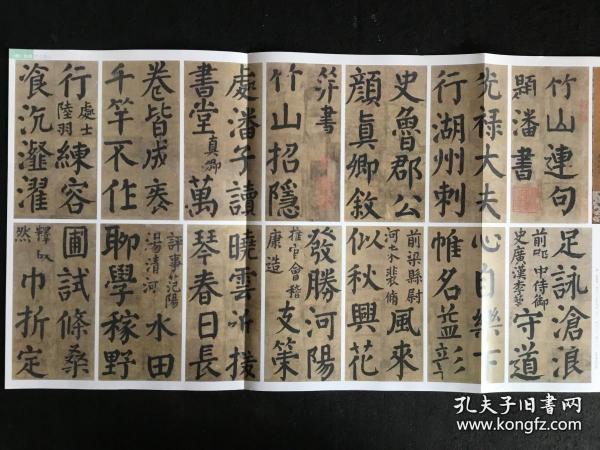 竹山連句
題潘書
光禄大夫
行湖州刺
史魯郡公
顔真卿敘
并書
竹山招隱
處潘子讀
書堂真卿萬
卷皆成帙
千竿不作
行處士陸羽練容
飡沆瀣濯
足詠滄浪
前殿中侍御史廣漢李萼守道
心自樂下
帷名益彰
前梁縣尉河東裴脩風來
似秋興花
發勝河陽
推官會稽康造支策
曉雲近援
琴春日長
評事范陽湯清河水田
聊學稼野
圃試條桑
釋皎然巾折定
孔夫子旧书网
www.kongfz.com